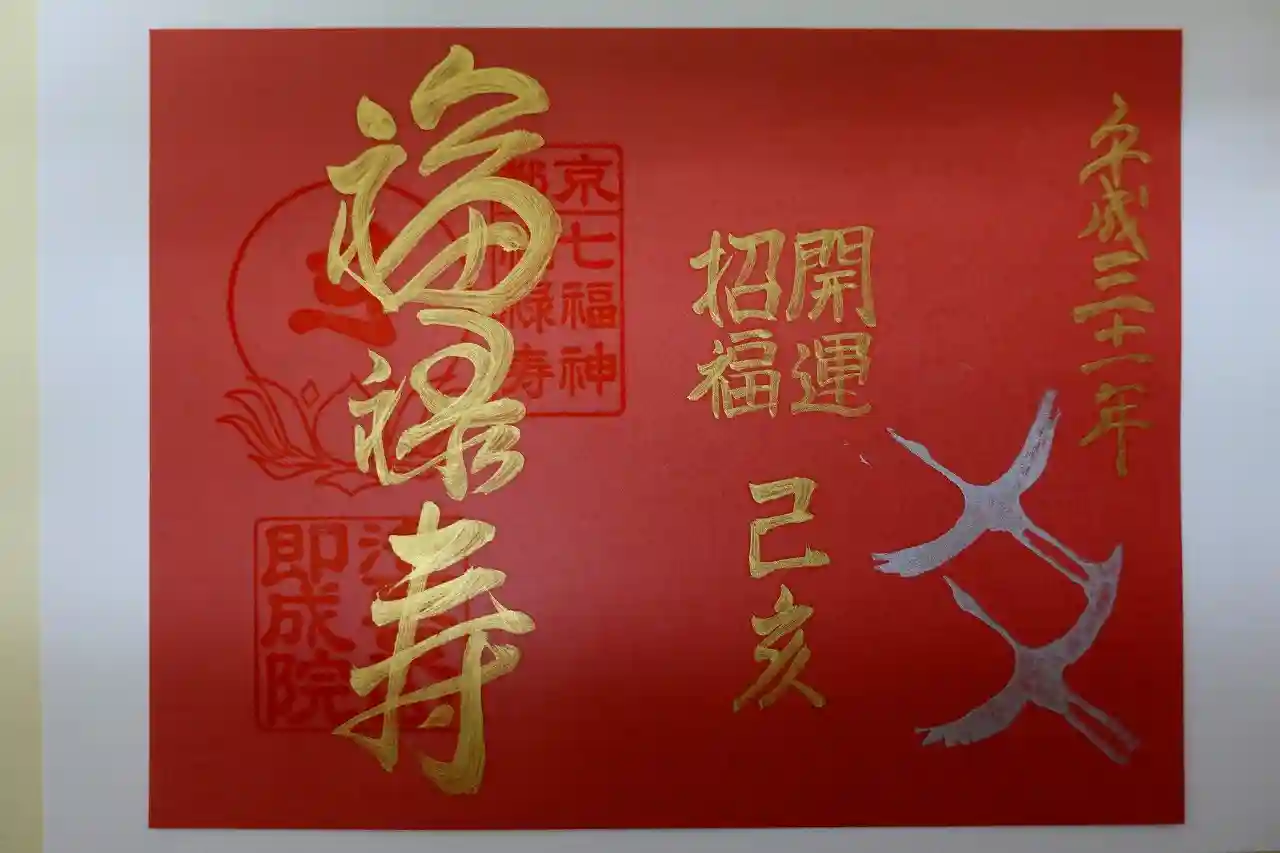 平成三十一年
開運
招福
己亥
福禄寿
京七福神
都福禄寿
即成院